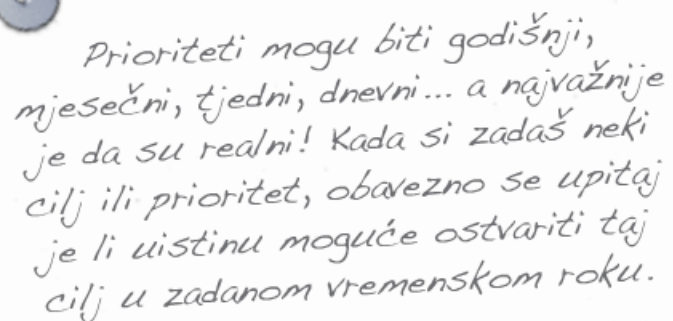 Prioriteti mogu biti godišnji,
mjesečni, tjedni, dnevni... a najvažnije
je da su realni! Kada si zadaš neki
cilj ili prioritet, obavezno se upitaj
je li uistinu moguće ostvariti taj
cilj u zadanom vremenskom roku.